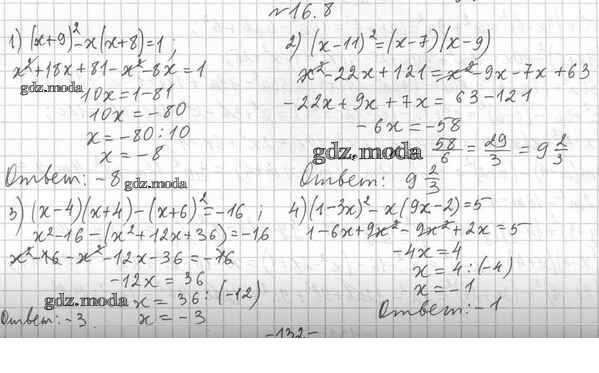 №16.8
1) (x+9)²-x(x+8)=1;
x²+18x+81-x²-8x=1
gdz.moda
10x=1-81
10x=-80
x=-80:10
x=-8
Ответ: -8
gdz.moda
2) (x-11)²=(x-7)(x-9)
x²-22x+121=x²-9x-7x+63
-22x+9x+7x=63-121
-6x=-58
gdz.moda
58/6 = 29/3 = 9 2/3
Ответ: 9 2/3
3) (x-4)(x+4)-(x+6)²=-16;
x²-16-(x²+12x+36)=-16
x²-16-x²-12x-36=-16
-12x=36
gdz.moda
x=36:(-12)
x=-3
Ответ: -3.
4) (1-3x)²-x(9x-2)=5
1-6x+9x²-9x²+2x=5
-4x=4
x=4:(-4)
x=-1
Ответ: -1
-132-